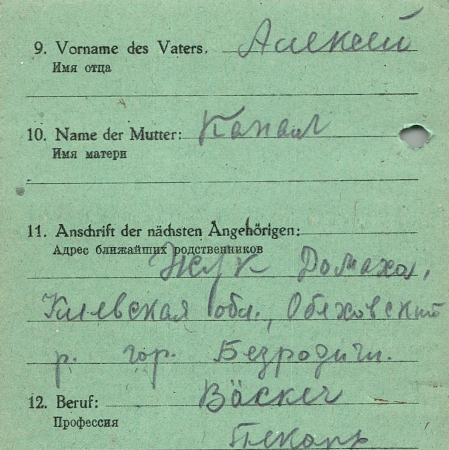 9. Vorname des Vaters. Алексей
Имя отца
10. Name der Mutter:
Имя матери
11. Anschrift der nächsten Angehörigen:
Адрес ближайших родственников
Жук Домаха,
Киевская обл., Обуховский
р. гор. Безродичи.
12. Beruf: Bäcker
Профессия
Пекарь